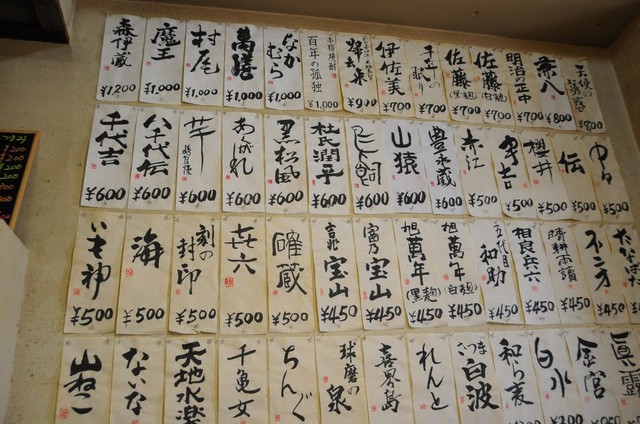 森伊蔵 ¥1,200
魔王 ¥1,000
村尾 ¥1,000
萬膳 ¥1,000
なかむら ¥1,000
本格焼酎 百年の孤独 ¥1,000
帰去来 ¥900
伊佐美 ¥700
¥700
佐藤(黒麹) ¥700
佐藤(甘麹) ¥700
明治の正中
兼八 ¥800
天使の誘惑 ¥800
千代吉 ¥600
八千代伝 ¥600
芋 ¥600
あばれ ¥600
黒松風 ¥600
杜氏潤平 ¥600
¥600
山猿 ¥600
豊永蔵 ¥600
赤江 ¥500
¥500
櫻井 ¥500
伝 ¥500
¥500
いも神 ¥500
海 ¥500
刻の封印 ¥500
七七六 ¥500
確蔵 ¥500
吉兆宝山 ¥450
富乃宝山 ¥450
旭萬年(黒麹) ¥450
旭萬年(白麹) ¥450
五代目和助 ¥450
相良兵六 ¥450
晴耕雨讀 ¥450
不二才 ¥450
¥450
山ねこ
ないな
天地水楽
千亀女
ちんぐ
球磨の泉
喜界島
れんと
さつま白波
和ら麦
白水
金宮
眞露